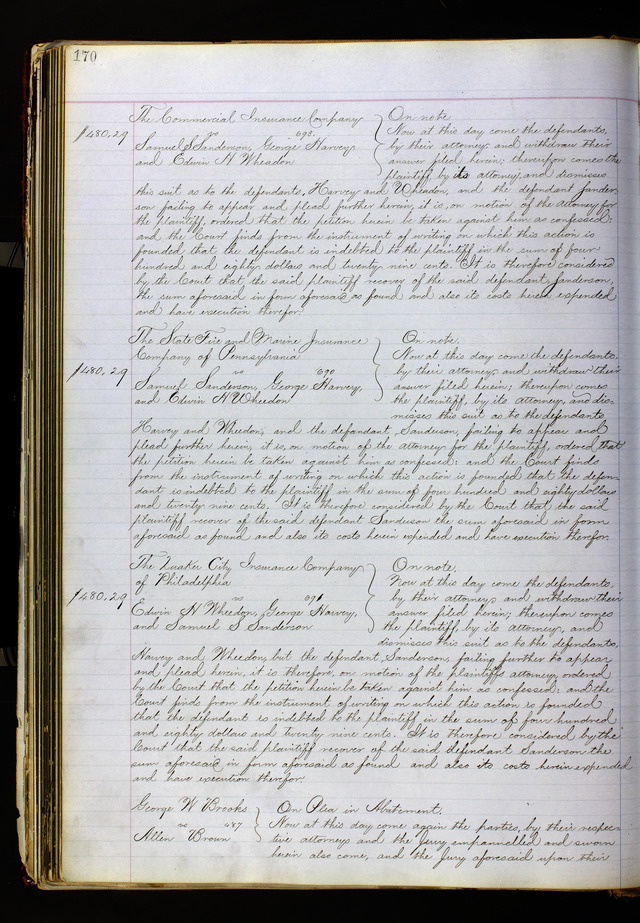 170
The Commercial Insurance Company } On note.
$480,29 vs 693. Now at this day come the defendants,
Samuel S Sanderson, George Harvey, by their attorney, and withdraw their
and Edwin H Wheadon answer filed herein; thereupon comes the
plaintiff by its attorney, and dismisses
this suit as to the defendants, Harvey and Wheadon, and the defendant Sander-
son failing to appear and plead further herein, it is, on motion of the attorney for
the plaintiff, ordered that the petition herein be taken against him as confessed:
and the Court finds from the instrument of writing on which this action is
founded that the defendant is indebted to the plaintiff in the sum of four
hundred and eighty dollars and twenty nine cents. It is therefore considered
by the Court that the said plaintiff recover of the said defendant Sanderson,
the sum aforesaid in form aforesaid as found and also its costs herein expended
and have execution therefor.
The State Fire and Marine Insurance } On note.
Company of Pennsylvania Now at this day come the defendants,
$480,29 vs 690 by their attorney, and withdraw their
Samuel Sanderson, George Harvey, answer filed herein; thereupon comes
and Edwin H Wheedon the plaintiff, by its attorney, and dis-
misses this suit as to the defendants,
Harvey and Wheedon, and the defendant, Sanderson, failing to appear and
plead further herein, it is, on motion of the attorney for the plaintiff, ordered that
the petition herein be taken against him as confessed: and the Court finds
from the instrument of writing on which this action is founded that the defen-
dant is indebted to the plaintiff in the sum of four hundred and eighty dollars
and twenty nine cents. It is therefore considered by the Court that the said
plaintiff recover of the said defendant Sanderson the sum aforesaid in form
aforesaid as found and also its costs herein expended and have execution therefor.
The Quaker City Insurance Company } On note.
of Philadelphia Now at this day come the defendants,
$480,29 vs 691 by their attorney, and withdraw their
Edwin H Wheedon, George Harvey, answer filed herein; thereupon comes
and Samuel S Sanderson the plaintiff, by its attorney, and
dismisses this suit as to the defendants,
Harvey and Wheedon, but the defendant, Sanderson, failing further to appear
and plead herein, it is therefore, on motion of the plaintiffs attorney, ordered
by the Court that the petition herein be taken against him as confessed: and the
Court finds from the instrument of writing on which this action is founded
that the defendant is indebted to the plaintiff in the sum of four hundred
and eighty dollars and twenty nine cents. It is therefore considered by the
Court that the said plaintiff recover of the said defendant Sanderson the
sum aforesaid in form aforesaid as found and also its costs herein expended
and have execution therefor.
George W Brooks } On Plea in Abatement.
vs 487 Now at this day come again the parties, by their respec-
Allen Brown tive attorneys and the Jury empannelled and sworn
herein also come, and the Jury aforesaid upon their